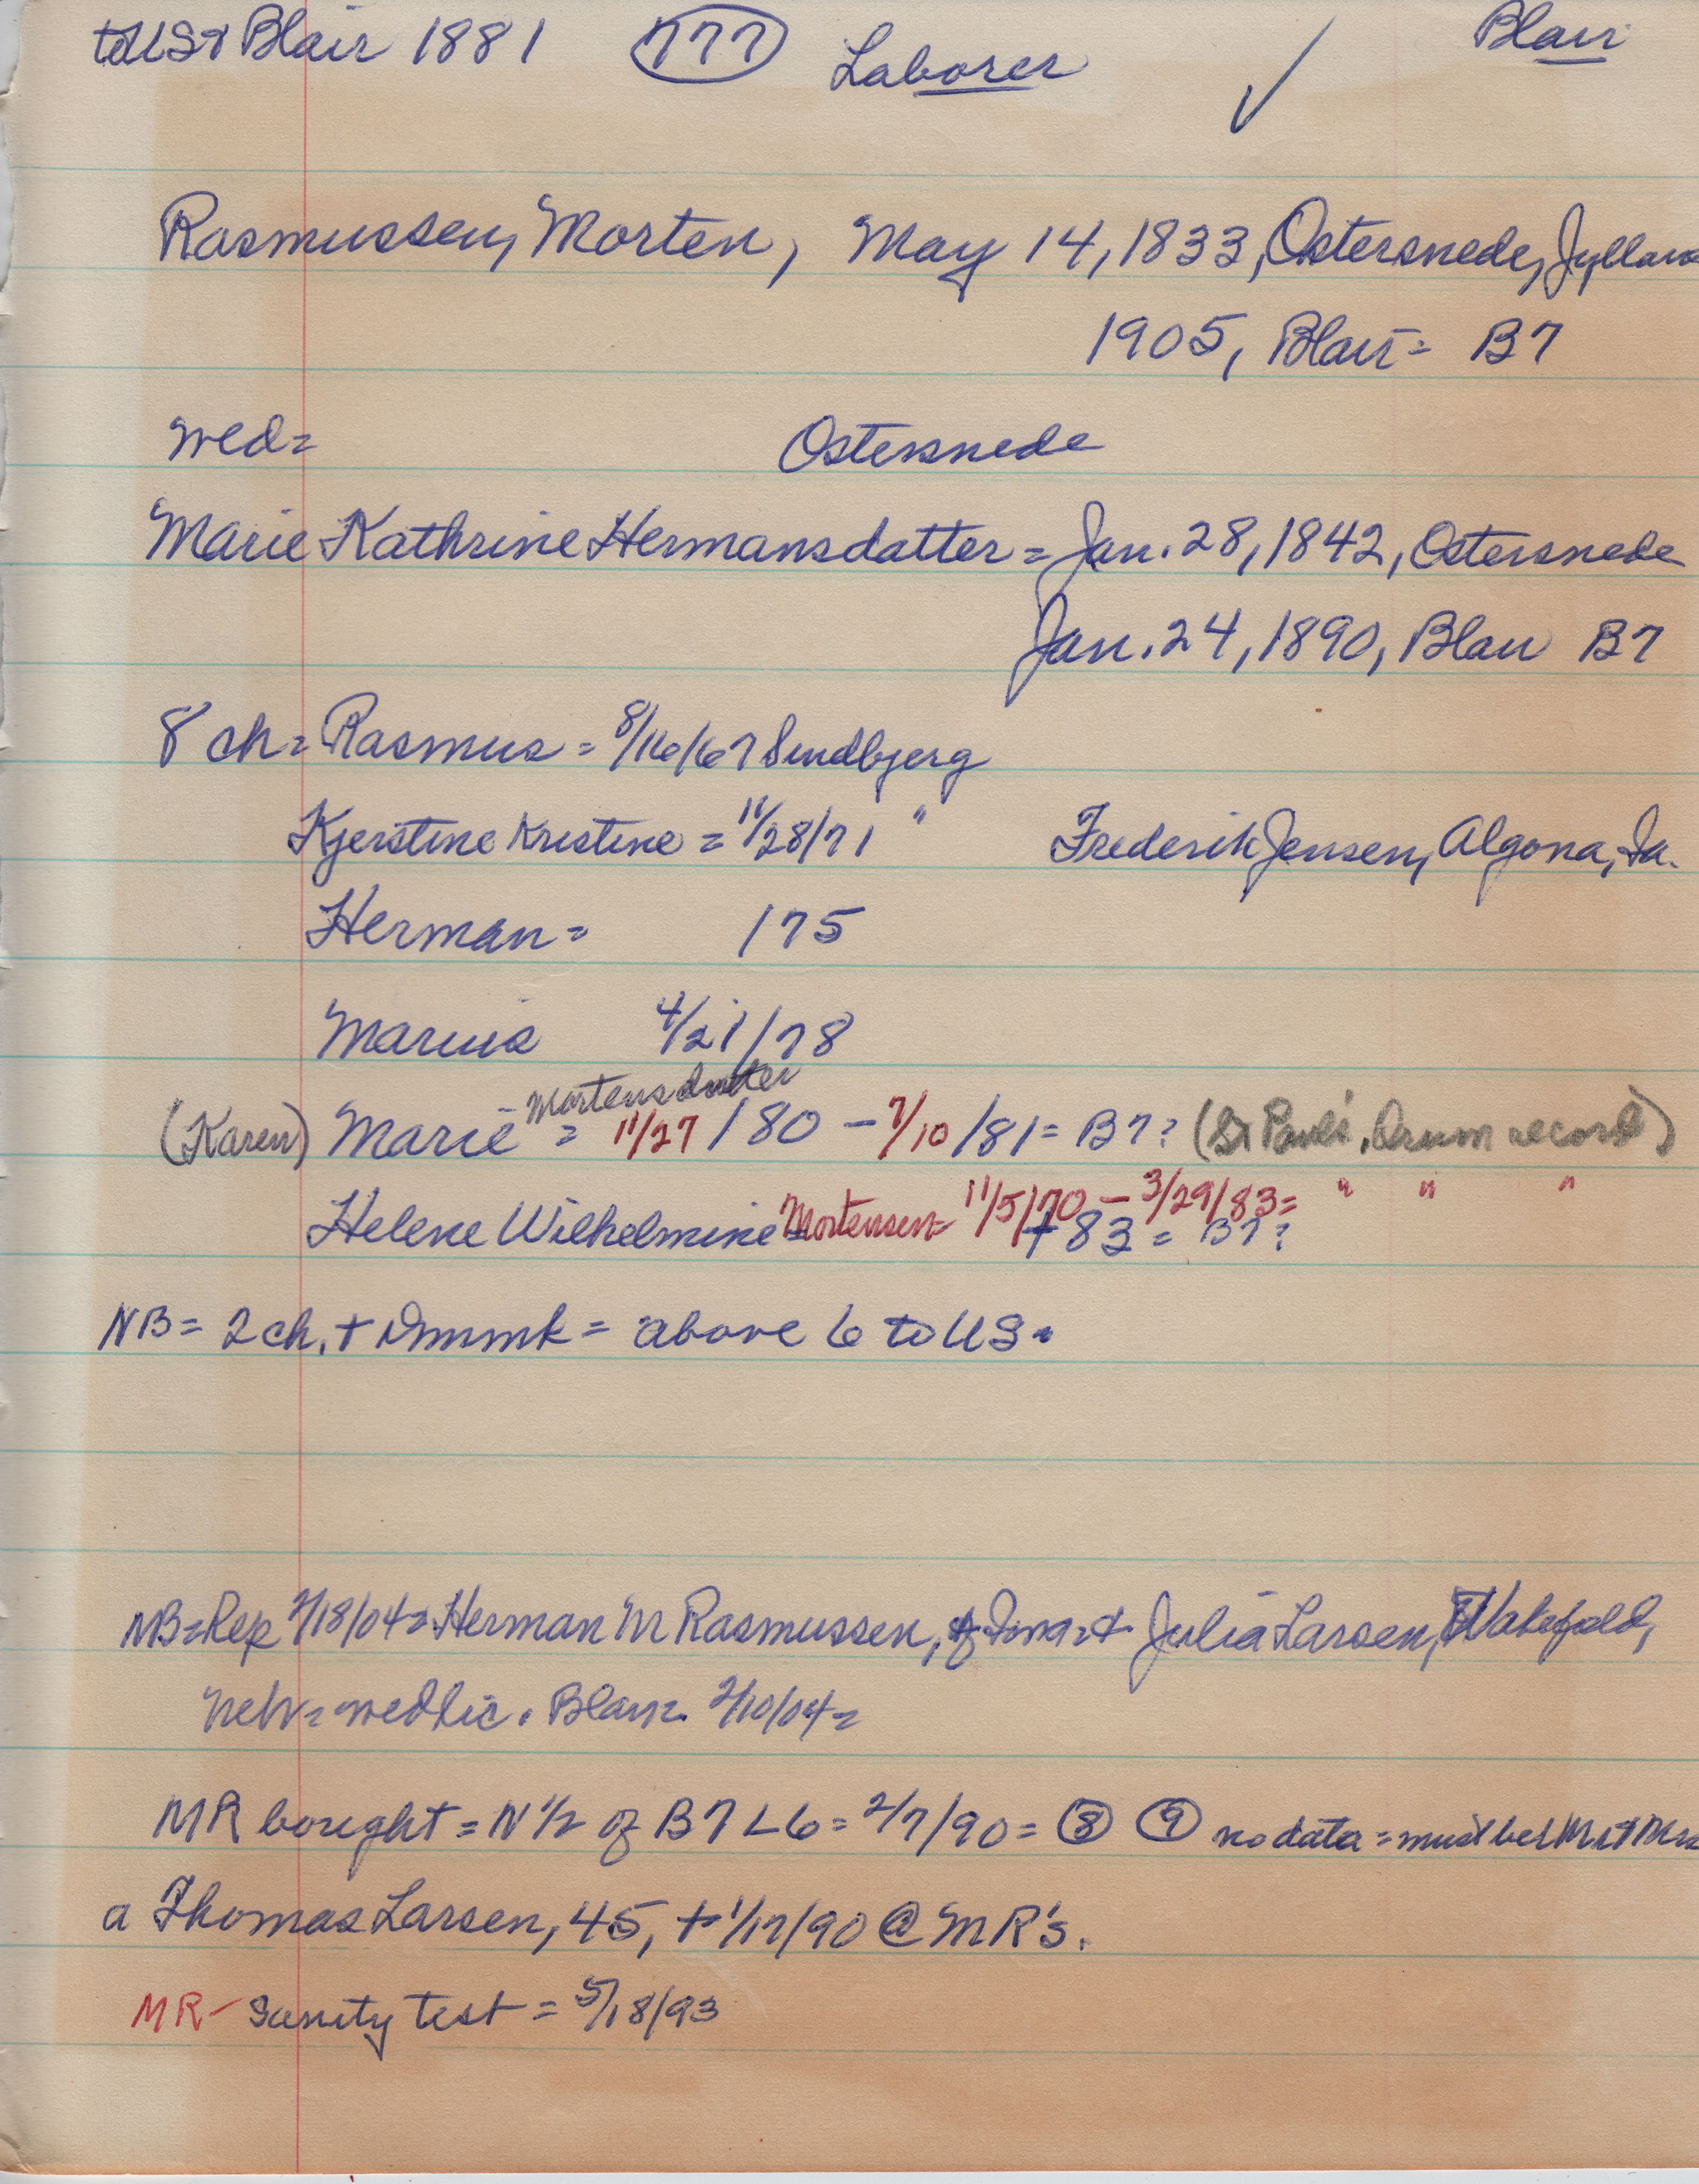 to US & Blair 1881 777 Laborer ✓ Blair
Rasmussen, Morten, May 14, 1833, Ostersnede, Jylland
1905, Blair = B7
wed = Ostersnede
Marie Kathrine Hermansdatter = Jan. 28, 1842, Ostersnede
Jan. 24, 1890, Blair B7
8 ch = Rasmus = 8/16/67 Sindbjerg
Kjerstine Kristine = 11/28/71 " Frederik Jensen, Algona, Ia.
Herman = /75
Marius 4/21/78
Mortensdatter
(Karen) Marie = 11/27/80 - 7/10/81 = B7? (St Paul's, Orum record)
Helene Wilhelmine Mortensen = 11/5/70 - 3/29/83 = " " "
+ 83 = B7?
NB = 2 ch. + Dnmmk = above 6 to US.
NB = Rep 2/18/04 = Herman M Rasmussen, & Julia Larsen, Wakefield,
Neb = wed lic. Blair = 2/10/04 =
MR bought = N 1/2 of B7 L6 = 2/7/90 = 8 9 no data = must be Mr & Mrs
a Thomas Larsen, 45, + 1/17/90 @ MR's.
MR - Sanity test = 5/18/93